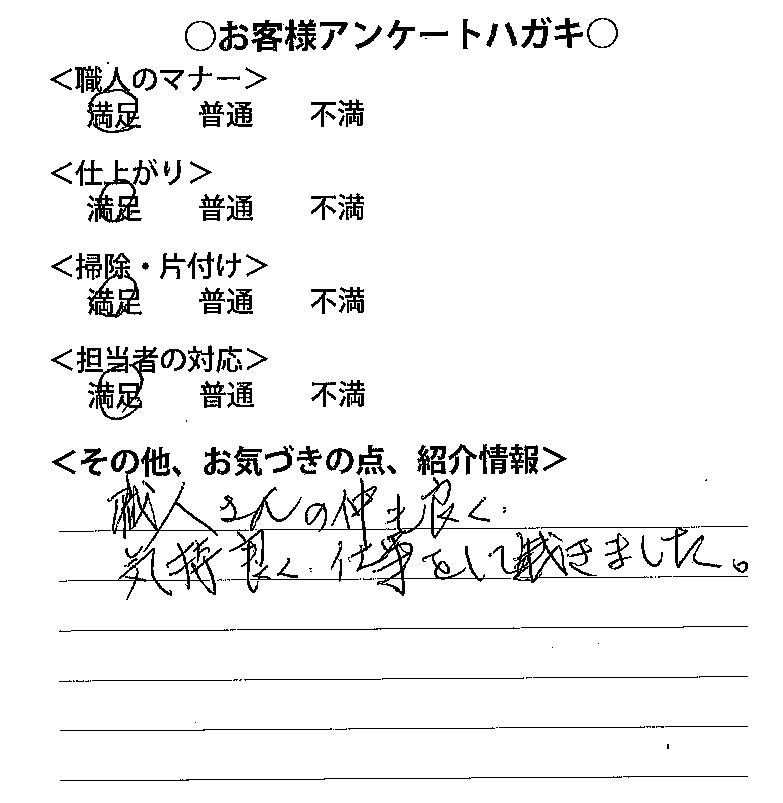 ○お客様アンケートハガキ○
＜職人のマナー＞
満足　普通　不満
＜仕上がり＞
満足　普通　不満
＜掃除・片付け＞
満足　普通　不満
＜担当者の対応＞
満足　普通　不満
＜その他、お気づきの点、紹介情報＞
職人さんの仲も良く
気持良く仕事をして戴きました。